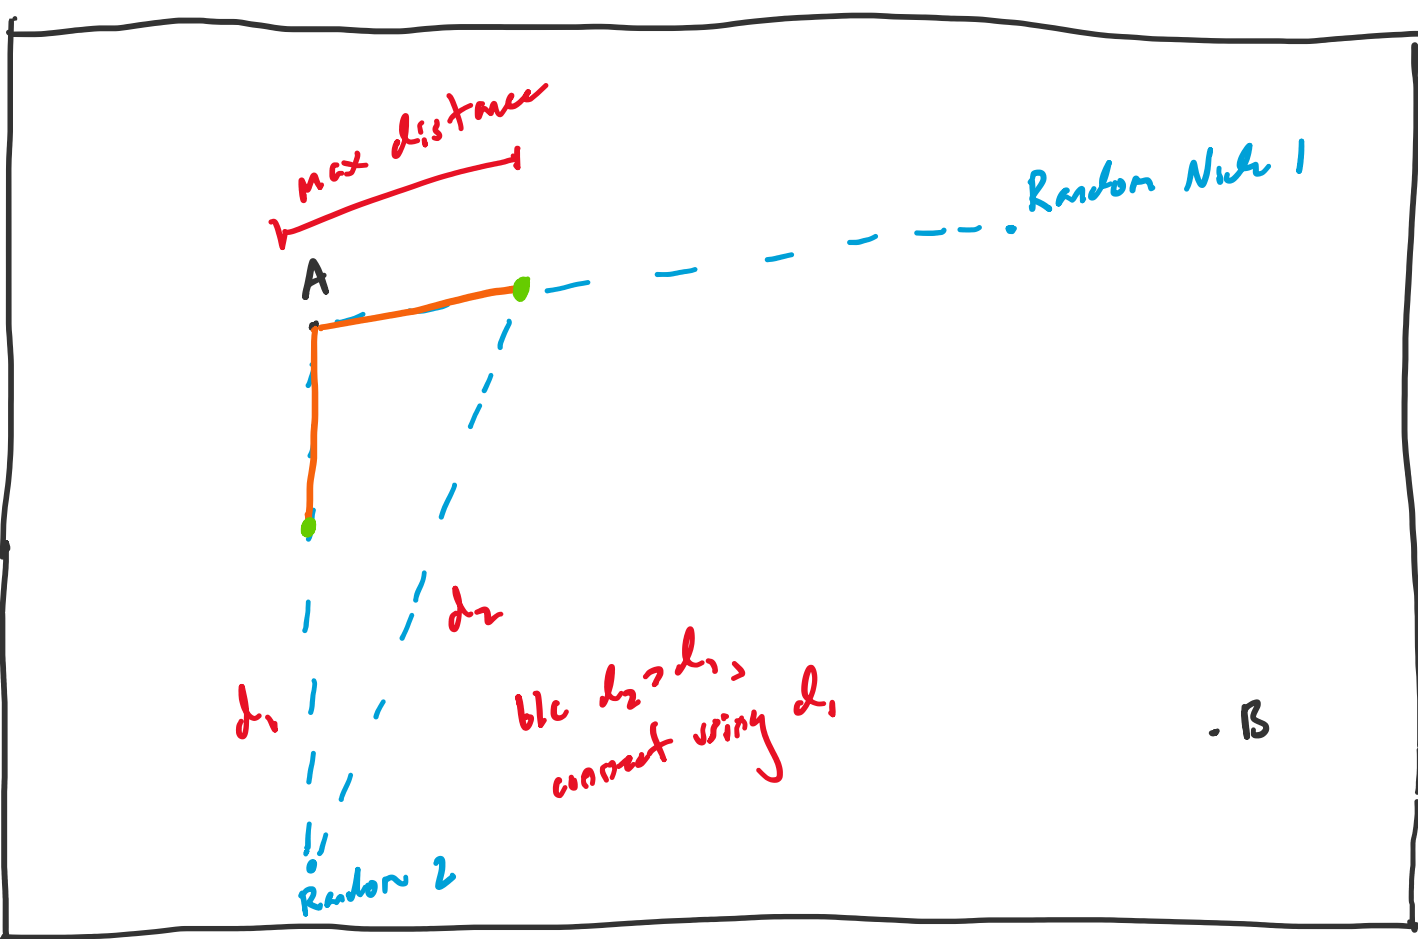 max distance
Random Node 1
A
d2
d1
b/c d2 > d1,
connect using d1
B
Random 2